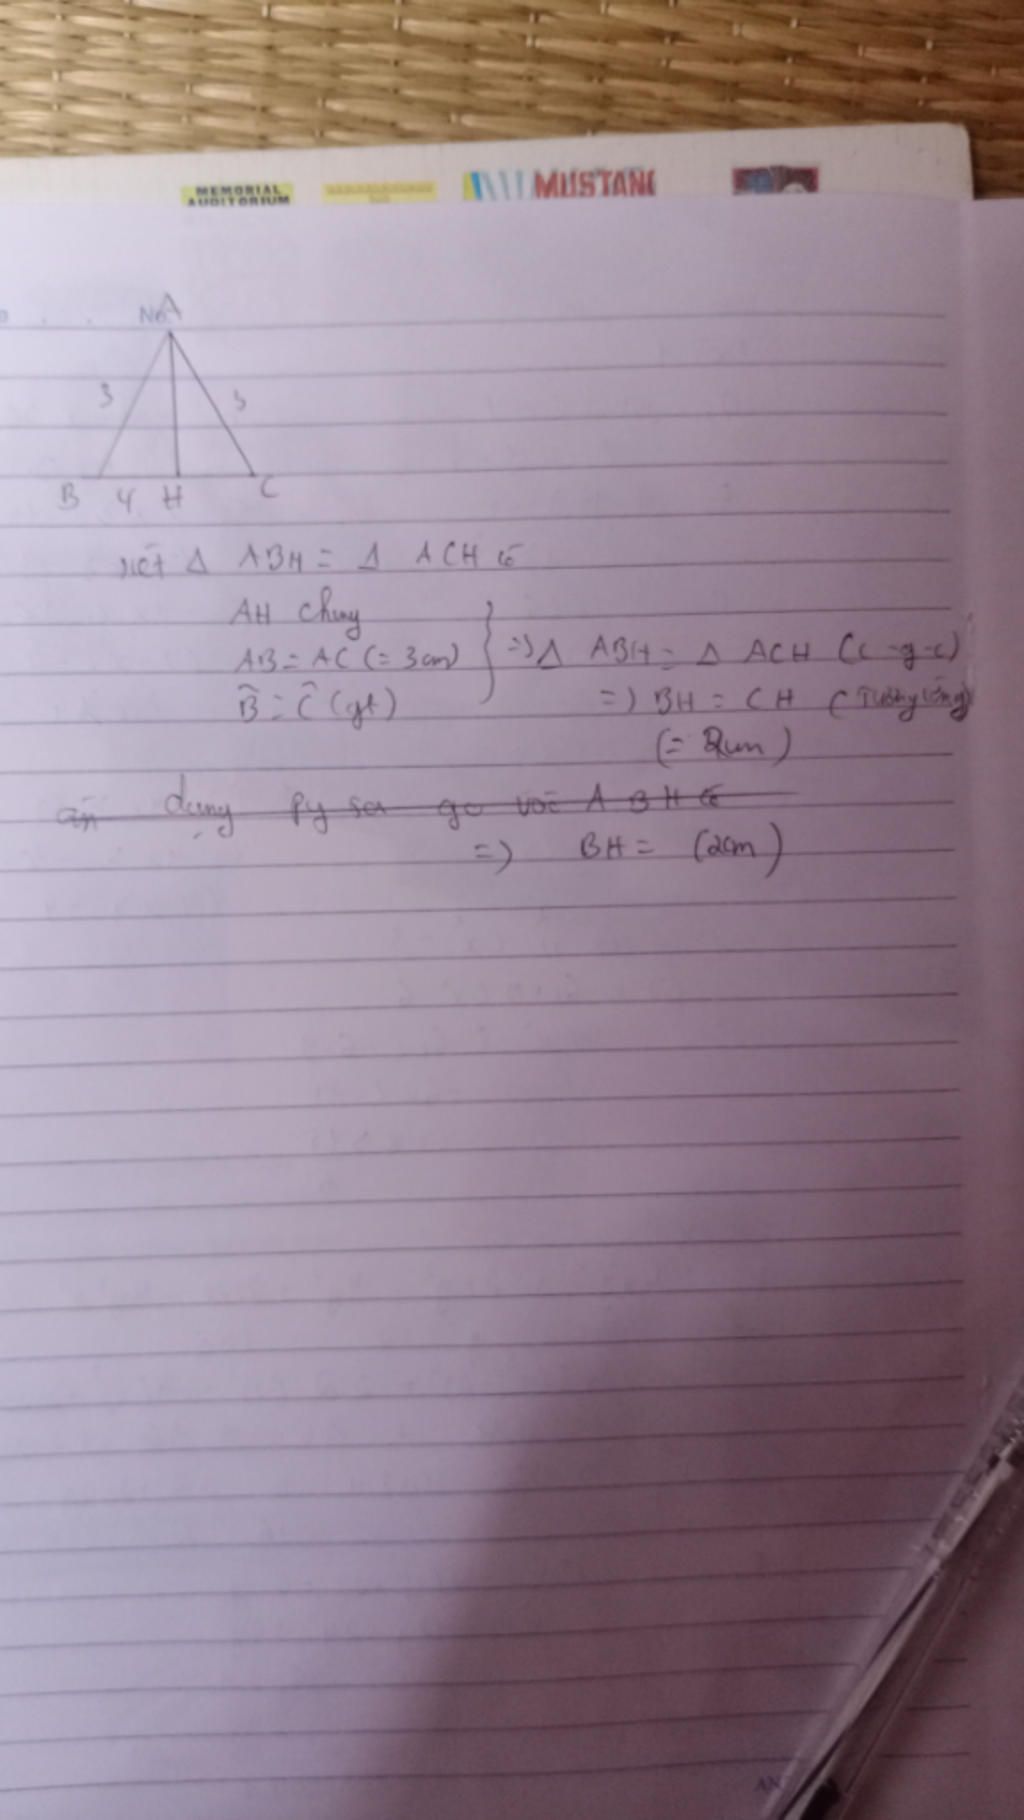 MEMORIAL
AUDITORIUM
MUSTANG
No.
A
3
3
B 4 H C
xét Δ ABH = Δ ACH có
AH chung
AB = AC (= 3 cm) } => Δ ABH = Δ ACH (c-g-c)
B̂ = Ĉ (gt) => BH = CH (tương ứng)
(= 2cm)
dụng Py ta go với A B H có
=> BH = (2cm)